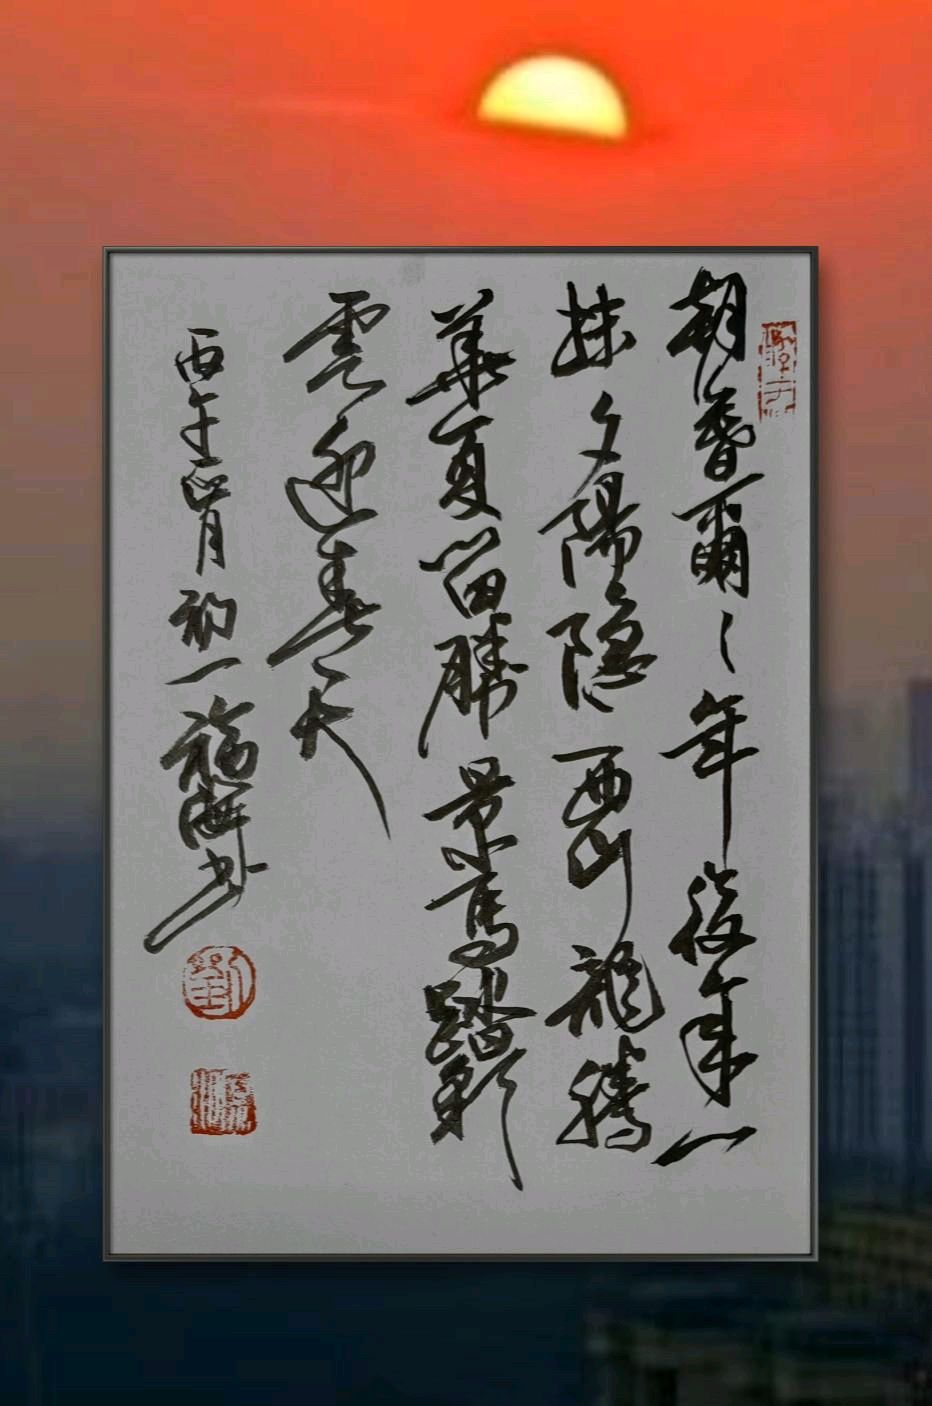 朝暮爾々年復年一
抹夕陽隱西山龍騰
華夏留勝景馬踏彩
雲迎春天
丙午正月初一福海书
劉